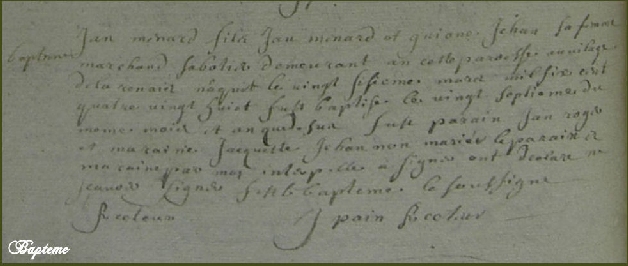 Jan menard fils Jan menard et guione Jehan sa fame
bapteme
marchand sabotier demeurant an cette paroesse au vilage
de la naquit le vingt siseme mars mil six cent
quatre vingt huict fust baptise le vingt septieme du
mesme mois et an que desus fust parain Jan roger
et maraine Jacquette Jehan non mariée le parain &
maraine par moy interpelle a signer ont declare ne
signer fist le bapteme le soussigne
Recteur J pain Recteur
Bapteme